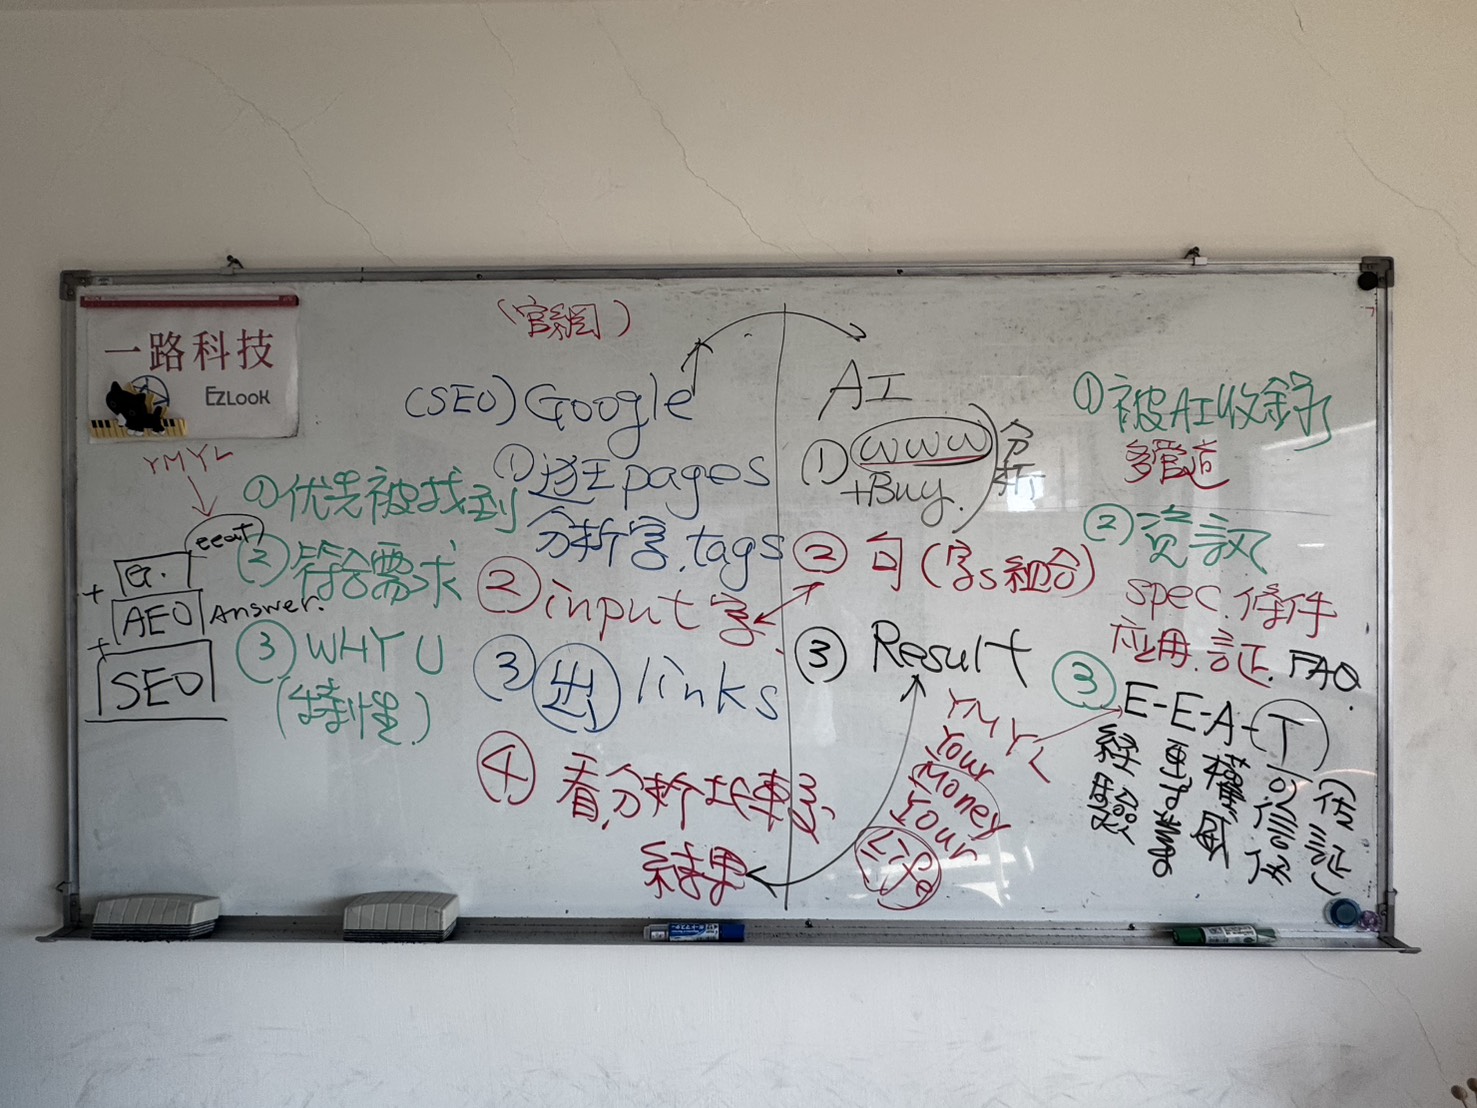 一路科技
EZLOOK
(官網)
(SEO) Google
① 逛 pages
分析字.tags
② input 字
③ 出 links
④ 看,分析找專家
結果
YMYL
eeat
+ G.
AEO Answer.
+
SEO
① 优先被找到
② 符合需求
③ WHY U
(特性)
AI
① WWW
+Buy.
分析
② 句(字s組合)
③ Result
YMYL
Your
Money
Your
Life
① 被AI收錄
多管道
② 資訊
spec.條件
应用.証.FAQ.
③ E-E-A-T
經驗
專業
權威
可信任
(佐証)